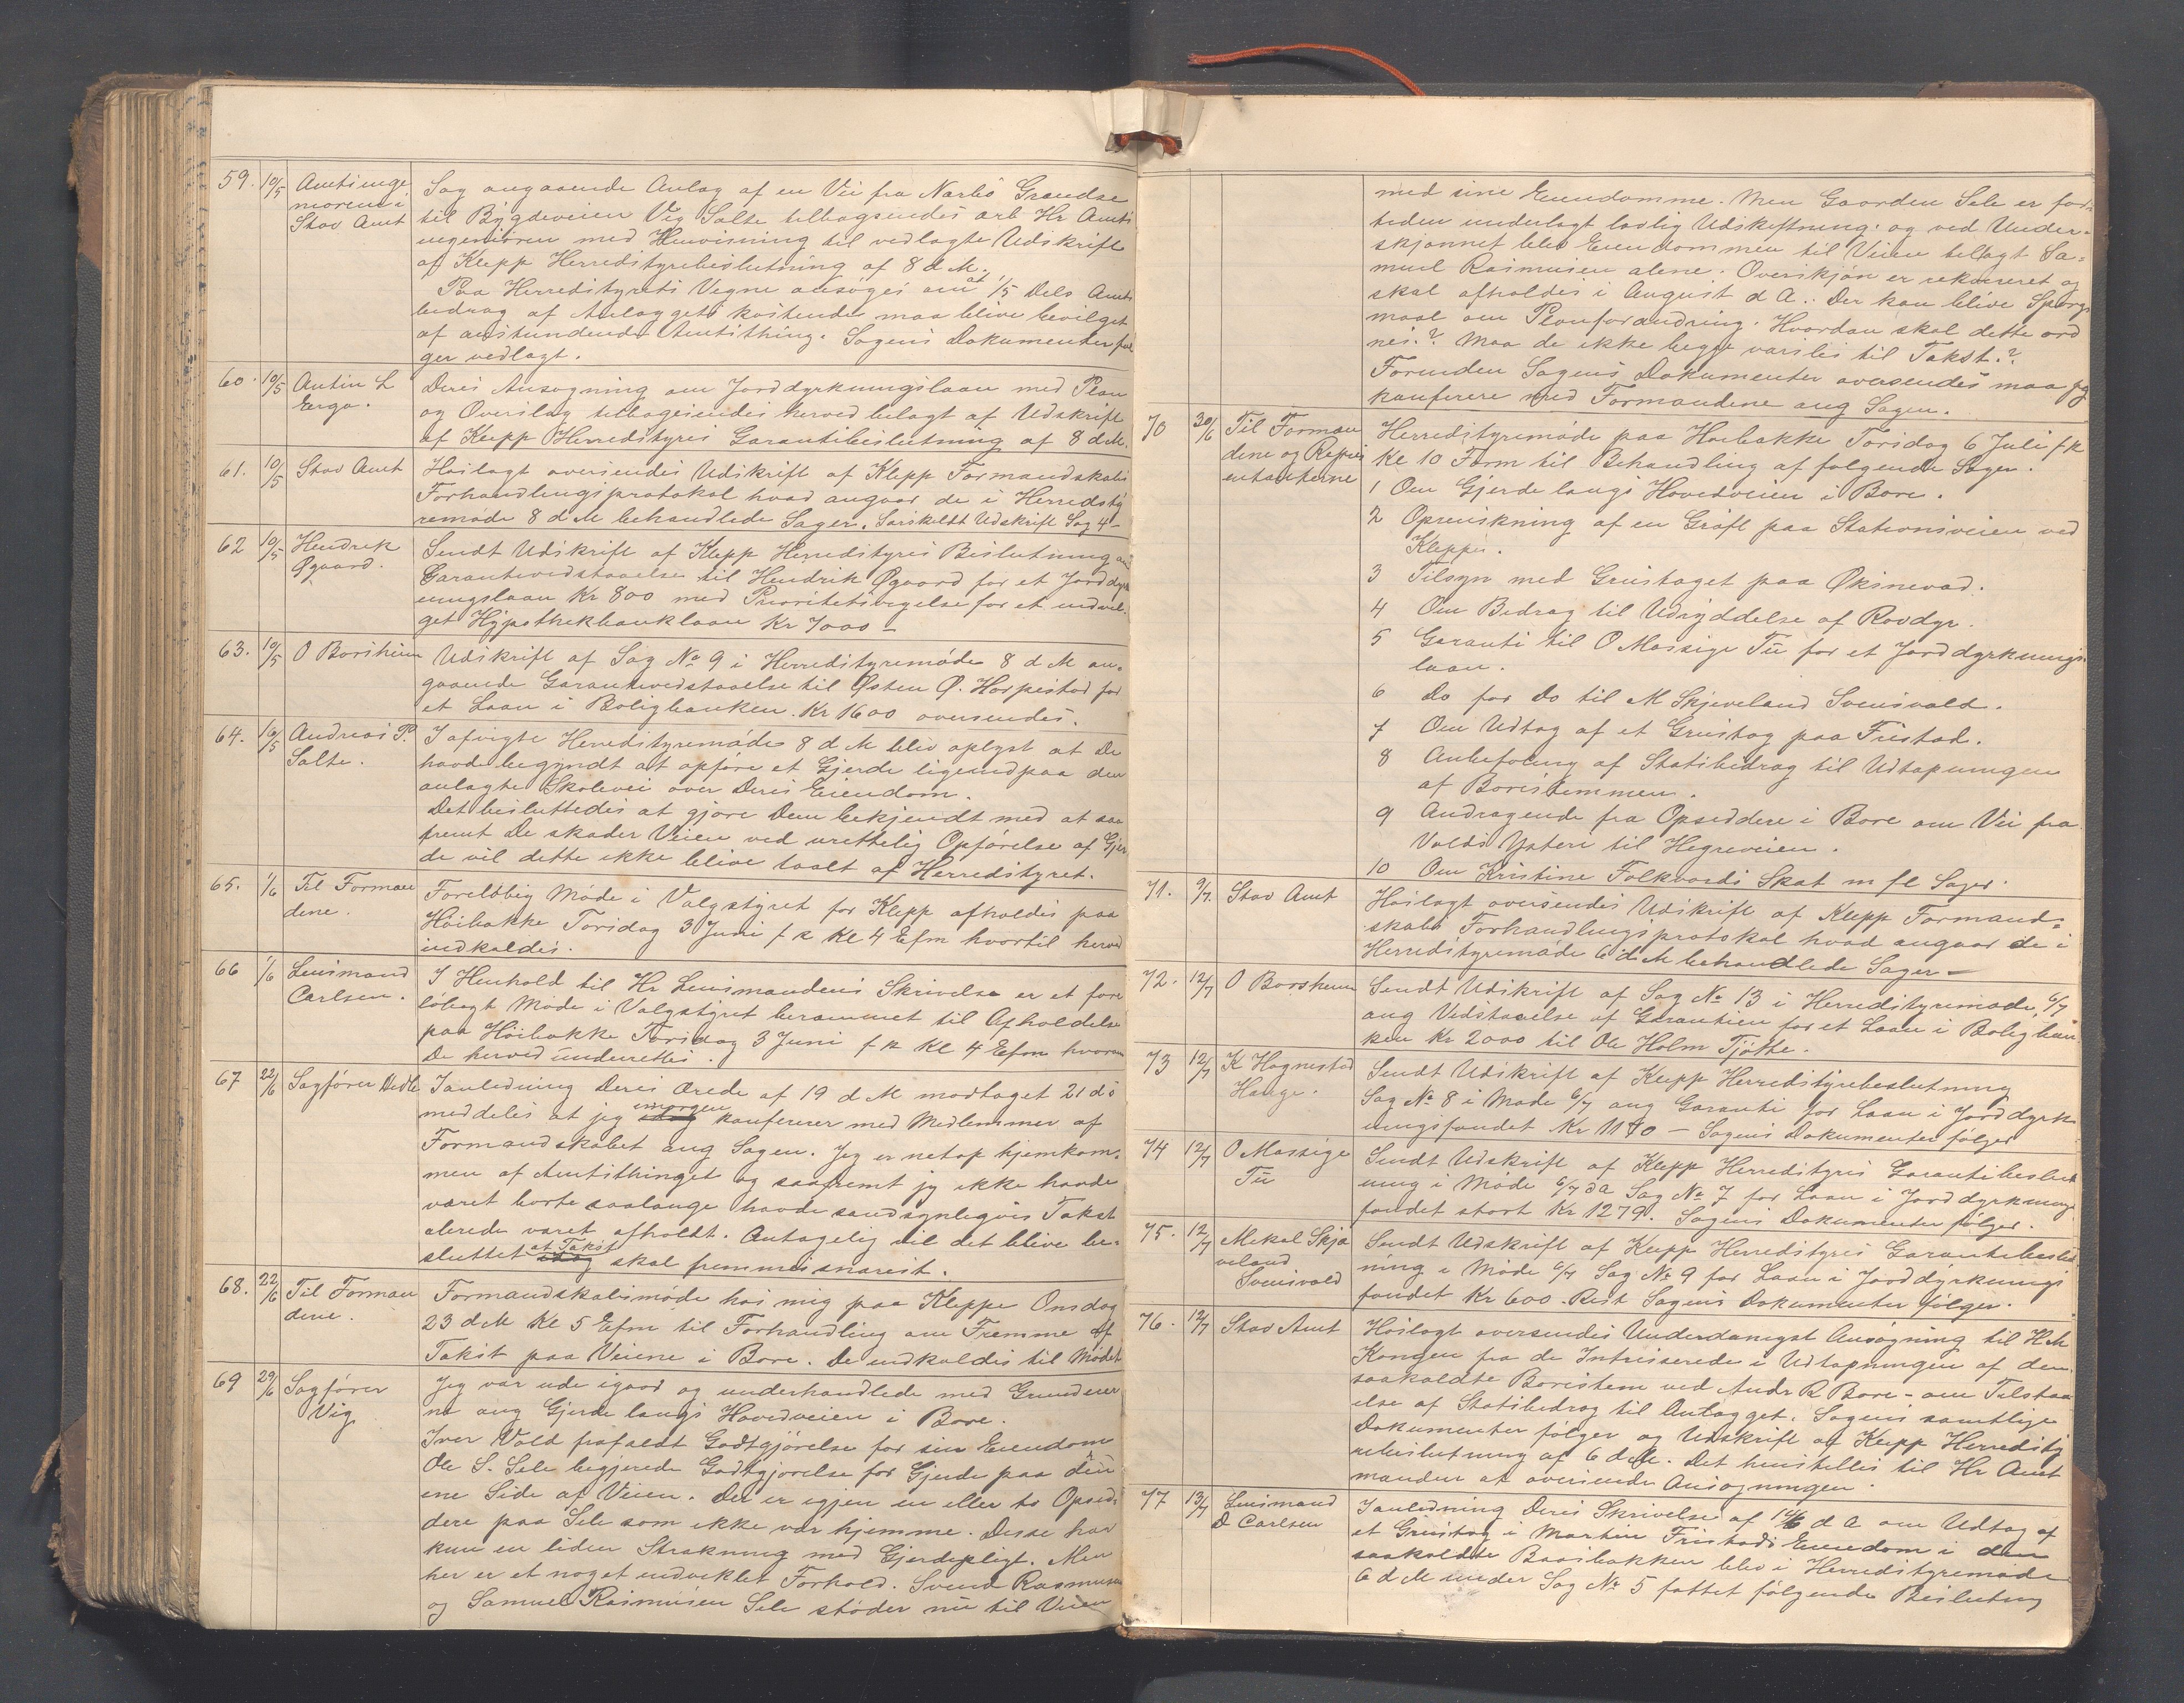 59. 10/5 Amtsinge
niøren i
Stav Amt
Sag angaaende Anlag af en Vei fra Narbø Grændse
til Bygdeveien Vig Salte tilbagesendes ærb Hr Amts
ingeniøren med Henvisning til vedlagte Udskrift
af Klepp Herredstyrebeslutning af 8 d M.
Paa Herredstyrets Vegne ansøges om at 1/5 Dels Amts
bidrag af Anlaggets kostende maa blive bevilget
af anstundende Amtsthing. Sagens Dokumenter føl
ger vedlagt.
60. 10/5 Antin L
Erga.
Deres Ansøgning om Jorddyrkningslaan med Plan
og Overslag tilbagesendes herved belagt af Udskrift
af Klepp Herredstyres Garantibeslutning af 8 d M.
61. 10/5 Stav Amt
Høilagt oversendes Udskrift af Klepp Formandskabs
Forhandlingsprotokol hvad angaar de i Herredsty
remøde 8 d M behandlede Sager. Særskeldt Udskrift Sag 4 –
62 10/5 Hendrik
Øgaard.
Sendt Udskrift af Klepp Herredstyres Beslutning om
Garantivedstaaelse til Hendrik Øgaard for et Jorddyrk
ningslaan Kr 800 med Prioritetsvigelse for et indvil
get Hypothekbanklaan Kr 7000 –
63. 10/5 O Borsheim
Udskrift af Sag No 9 i Herredstyremøde 8 d M an-
gaaende Garantivedstaaelse til Østen Ø. Horpestad for
et Laan i Boligbanken. Kr 1600 oversendes.
64. 16/5 Andreas P.
Salte.
I afvigte Herredstyremøde 8 d M blev oplyst at De
havde begyndt at opføre et Gjerde ligeindpaa den
anlagte Skolevei over Deres Eiendom.
Det besluttedes at gjøre Dem bekjendt med at saa
fremt De skader Veien ved urettelig Opførelse af Gjer
de vil dette ikke blive taalt af Herredstyret.
65. 1/6 Til Forman
dene.
Foreløbig Møde i Valgstyret for Klepp afholdes paa
Høibakke Torsdag 3 Juni f k Kl 4 Efm hvortil herved
indkaldes.
66 1/6 Lensmand
Carlsen.
I Henhold til Hr Lensmandens Skrivelse er et fore
løbigt Møde i Valgstyret berammet til Afholdelse
paa Høibakke Torsdag 3 Juni f k Kl 4 Efm hvorom
De herved underrettes.
67 22/6 Sagfører
Ianledning Deres ærede af 19 d M modtaget 21 ds
meddeles at jeg imorgen konfererer med Medlemmer af
Formandskabet ang Sagen. Jeg er netop hjemkom-
men af Amtsthinget og saafremt jeg ikke havde
været borte saalange havde sandsynligvis Takst
allerede været afholdt. Antagelig vil det blive be-
sluttet at Takst skal fremmes snarest.
68. 22/6 Til Forman
dene.
Formandskabsmøde hos mig paa Kleppe Onsdag
23 d M Kl 5 Efm til Forhandling om Fremme af
Takst paa Veiene i Bore. De indkaldes til Mødet
69 29/6 Sagfører
Vig
Jeg var ude igaar og underhandlede med Grundeier
ne ang Gjerde langs Hovedveien i Bore.
Iver Vold frafaldt Godtgjørelse for sin Eiendom
Ole S. Sele begjerede Godtgjørelse for Gjerde paa den
ene Side af Veien. Der er igjen en eller to Opsid-
dere paa Sele som ikke var hjemme. Desse har
kun en liden Strækning med Gjerdepligt. Men
her er et noget indviklet Forhold. Svend Rasmussen
og Samuel Rasmusen Sele støder nu til Veien
med sine Eiendomme. Men Gaarden Sele er for
tiden underlagt lovlig Udskiftning. og ved Under-
skjønnet blev Eiendommen til Veien tillagt Sa-
muel Rasmusen alene. Overskjøn er rekvireret og
skal afholdes i August d A.: Der kan blive Spørgs
maal om Planforandring. Hvordan skal dette ord
nes.? Maa de ikke begge varsles til Takst.?
Forinden Sagens Dokumenter oversendes maa jeg
konferere med Formandene ang Sagen.
70 30/6 Til Forman
dene og Repræs
entanterne
Herredstyremøde paa Høibakke Torsdag 6 Juli f k
Kl 10 Form til Behandling af følgende Sager.
1 Om Gjerde langs Hovedveien i Bore.
2 Oprenskning af en Grøft paa Stationsveien ved
Kleppe.
3 Tilsyn med Grustaget paa Øksnevad.
4 Om Bidrag til Udryddelse af Rovdyr.
5 Garanti til O Massige Tu for et Jorddyrknings
laan.
6 Do for Do til M Skjeveland Svensvold.
7 Om Udtag af et Grustag paa Fristad.
8 Anbefaling af Statsbidrag til Udtapningen
af Borestemmen.
9 Andragende fra Opsiddere i Bore om Vei fra
Volds Ysteri til Hegreveien.
10 Om Kristine Folkvords Skat m fl Sager.
71. 9/7. Stav Amt
Høilagt oversendes Udskrift af Klepp Formand-
skabs Forhandlingsprotokol hvad angaar de i
Herredstyremøde 6 d M behandlede Sager –
72. 12/7 O Borsheim
Sendt Udskrift af Sag No 13 i Herredstyremøde 6/7
ang Vedstaaelse af Garantien for et Laan i Boligban
ken Kr 2000 til Ole Holm Tjøtte.
73 12/7 K Hognestad
Hauge.
Sendt Udskrift af Klepp Herredstyrebeslutning
Sag No 8 i Møde 6/7 ang Garanti for Laan i Jorddyrk
ningsfondet Kr 1170 – Sagens Dokumenter følger
74 12/7 O Massige
Tu
Sendt Udskrift af Klepp Herredstyres Garantibeslut
ning i Møde 6/7 d A Sag No 7 for Laan i Jorddyrknings
fondet stort Kr 1279. Sagens Dokumenter følger.
75. 12/7 Mikal Skjæ
veland
Svensvold
Sendt Udskrift af Klepp Herredstyres Garantibeslut
ning i Møde 6/7 Sag No 9 for Laan i Jorddyrknings
fondet Kr 600. Rest Sagens Dokumenter følger.
76. 12/7 Stav Amt
Høilagt oversendes Underdanigst Ansøgning til H M
Kongen fra de Intreserede i Udtapningen af den
saakaldte Borestem ved Andr R Bore – om Tilstaa
else af Statsbidrag til Anlagget. Sagens samtlige
Dokumenter følger og Udskrift af Klepp Herredsty
rebeslutning af 6 d M. Det henstilles til Hr Amt
manden at oversende Ansøgningen.
77 13/7 Lensmand
D Carlsen
Ianledning Deres Skrivelse af d A om Udtag af
et Grustag i Martin Fristads Eiendom i den
saakaldte Baasbakken blev i Herredstyremøde
6 d M under Sag No 5 fattet følgende Beslutning